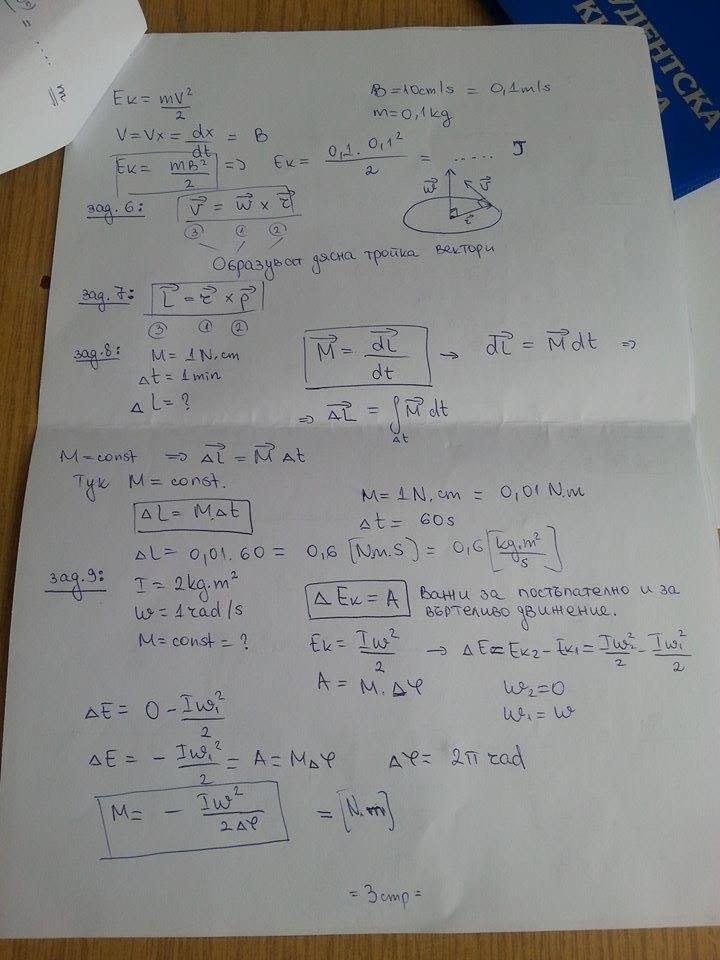 Eк = mV²/2
B = 10cm/s = 0,1m/s
m = 0,1kg
V = Vx = dx/dt = B
Eк = mB²/2 => Eк = 0,1 . 0,1²/2 = ..... J
зад. 6: v⃗ = w⃗ x r⃗
③ ① ②
w⃗ v⃗ r⃗
Образуват дясна тройка вектори
зад. 7: L⃗ = r⃗ x p⃗
③ ① ②
зад. 8: M = 1N.cm
Δt = 1min
ΔL = ?
M⃗ = dL⃗/dt → dL⃗ = M⃗dt =>
=> ΔL⃗ = ∫M⃗dt
Δt
M = const => ΔL⃗ = M⃗Δt
Тук M = const.
ΔL = M.Δt
M = 1N.cm = 0,01N.m
Δt = 60s
ΔL = 0,01.60 = 0,6 [Nm.S] = 0,6 [kg.m²/s]
зад. 9: I = 2kg.m²
w = 1rad/s
M = const = ?
ΔEк = A Важи за постъпателно и за
въртеливо движение.
Eк = Iw²/2 → ΔE = Eк2 - Eк1 = Iw₂²/2 - Iw₁²/2
A = M.Δφ
w₂ = 0
w₁ = w
ΔE = 0 - Iw₁²/2
ΔE = - Iw₁²/2 = A = MΔφ Δφ = 2π rad
M = - Iw²/2Δφ = [N.m]
= 3стр =
УДЕНТСКА